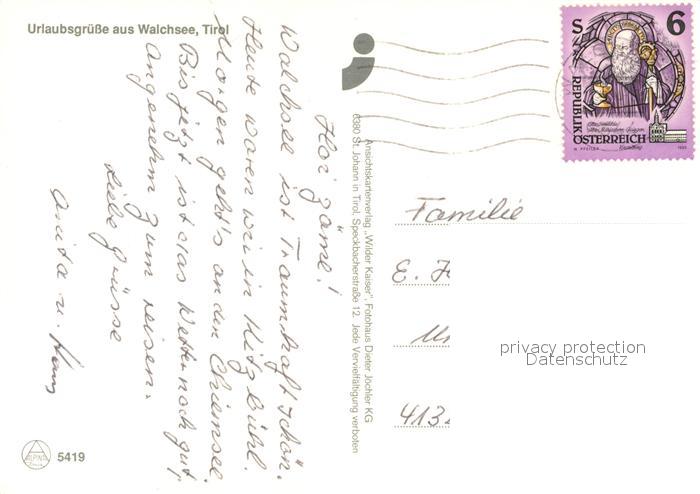 Urlaubsgrüße aus Walchsee, Tirol
Hoi zäme!
Walchsee ist Traumhaft schön.
Heute waren wir in Kitzbühl.
Morgen geht's an den Chiemsee.
Bis jetzt ist das Wetter noch gut,
angenehm zum reisen.
Liebe Grüsse
Anita u. Hans
Ansichtskartenverlag „Wilder Kaiser", Fotohaus Dieter Jöchler KG
6380 St. Johann in Tirol, Speckbacherstraße 12. Jede Vervielfältigung verboten
S 6
REPUBLIK
ÖSTERREICH
Familie
E.
413
privacy protection
Datenschutz
ALPINA
5419